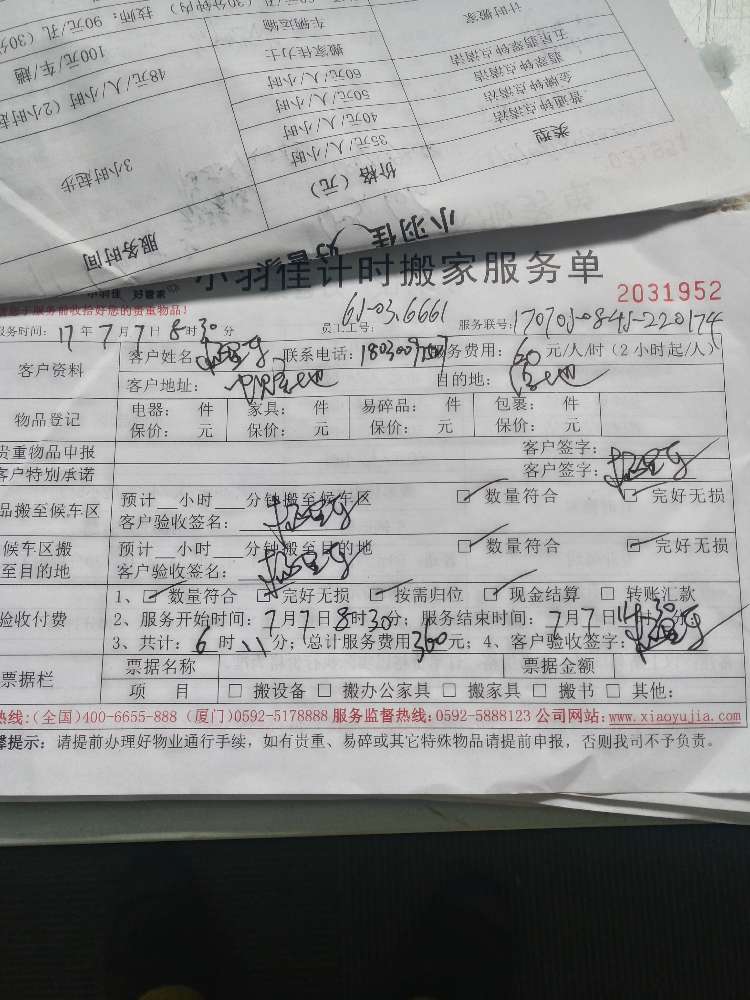 类型
价格（元）
服务时间
普通钟点清洁
35元/人/小时
3小时起步
金牌钟点清洁
40元/人/小时
翡翠钟点清洁
50元/人/小时
五星钟点清洁
60元/人/小时
计时搬家
搬家壮力士
48元/人/小时（2小时起
车辆运输
100元/车/趟
技师：90元/孔（30分
小羽佳 好管家
小羽佳计时搬家服务单
小羽佳 好管家
服务前收拾好您的贵重物品！
2031952
服务时间：17年7月7日8时30分
员工工号：
服务联号：
客户资料
客户姓名
联系电话：
服务费用：60元/人/时（2小时起/人）
客户地址：
目的地：
物品登记
电器： 件
家具： 件
易碎品： 件
包裹： 件
保价： 元
保价： 元
保价： 元
保价： 元
贵重物品申报
客户签字：
客户特别承诺
客户签字：
品搬至候车区
预计__小时___分钟搬至候车区
☑ 数量符合 ☐ 完好无损
客户验收签名：
候车区搬
至目的地
预计__小时___分钟搬至目的地
☐ 数量符合 ☑ 完好无损
客户验收签名：
验收付费
1、☑ 数量符合 ☑ 完好无损 ☑ 按需归位 ☑ 现金结算 ☐ 转账汇款
2、服务开始时间：7月7日8时30分；服务结束时间：7月7日14时30分
3、共计：6时\\分；总计服务费用360元；4、客户验收签字：
票据栏
票据名称
票据金额
项 目
☐ 搬设备 ☐ 搬办公家具 ☐ 搬家具 ☐ 搬书 ☐ 其他：
热线：(全国)400-6655-888 (厦门)0592-5178888 服务监督热线：0592-5888123 公司网站：www.xiaoyujia.com
馨提示：请提前办理好物业通行手续，如有贵重、易碎或其它特殊物品请提前申报，否则我司不予负责。